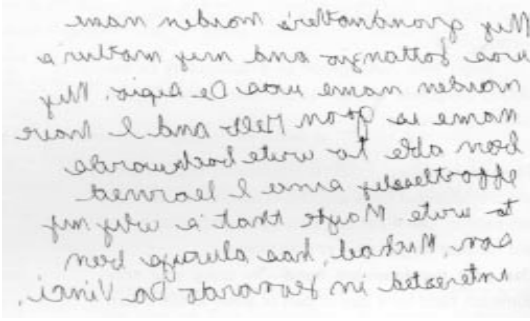 My grandmother's maiden name
was Lottanzo and my mother's
maiden name was De Sipio. My
name is Joan Mells and I have
been able to write backwards
effortlessly since I learned
to write. Maybe that's why my
son, Michael, has always been
interested in Leonardo Da Vinci.